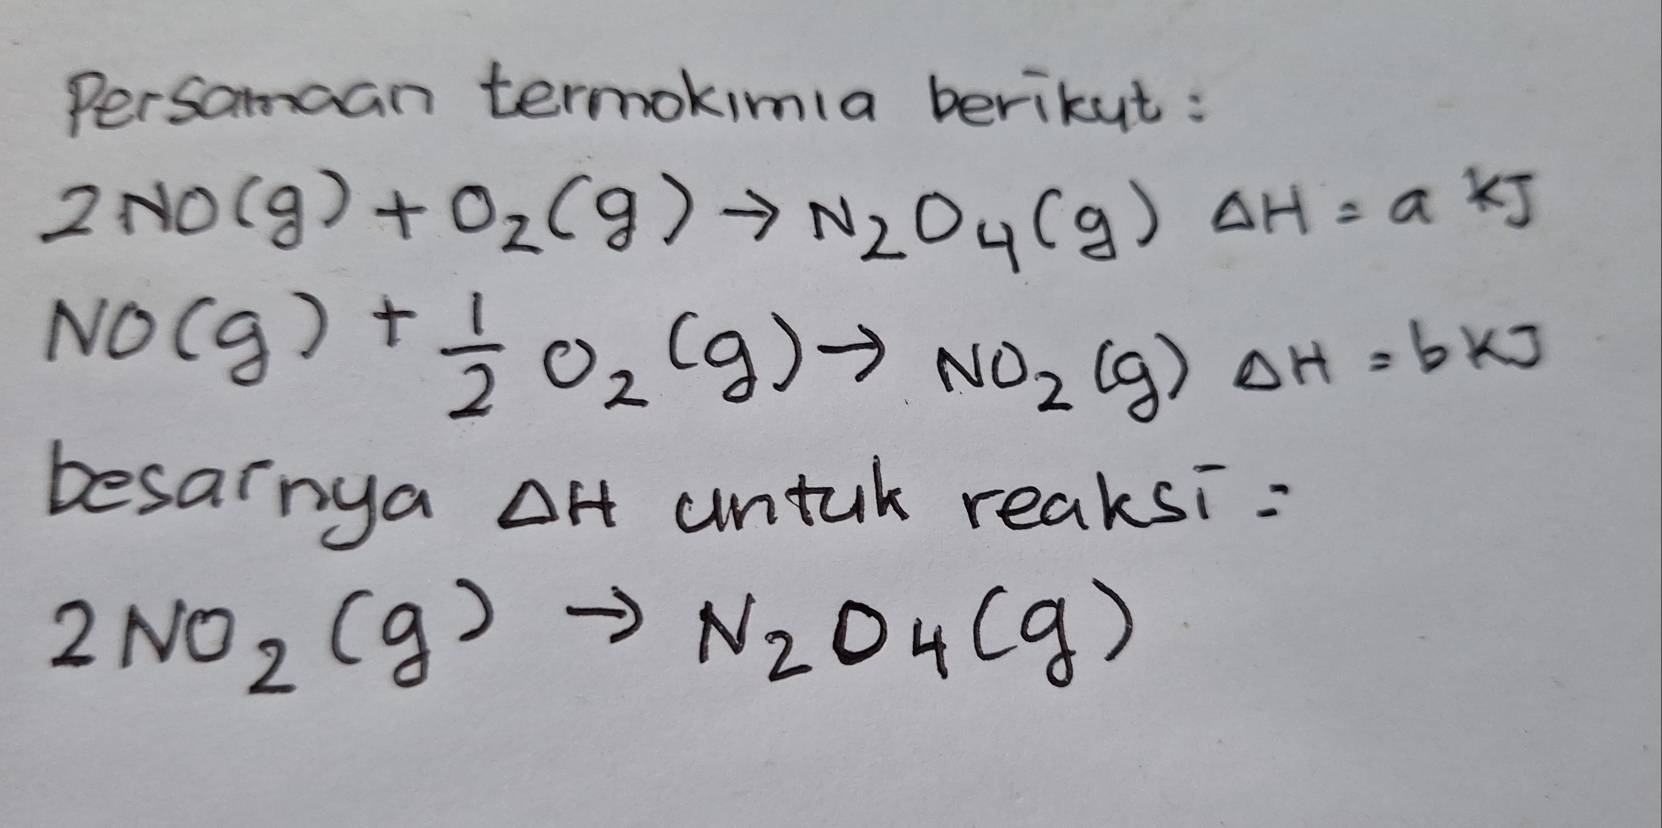 Persamaan termokimia berikut:
2NO(g) + O₂(g) → N₂O₄(g) ΔH = a kJ
NO(g) + 1/2 O₂(g) → NO₂(g) ΔH = b kJ
besarnya ΔH untuk reaksi =
2NO₂(g) → N₂O₄(g)